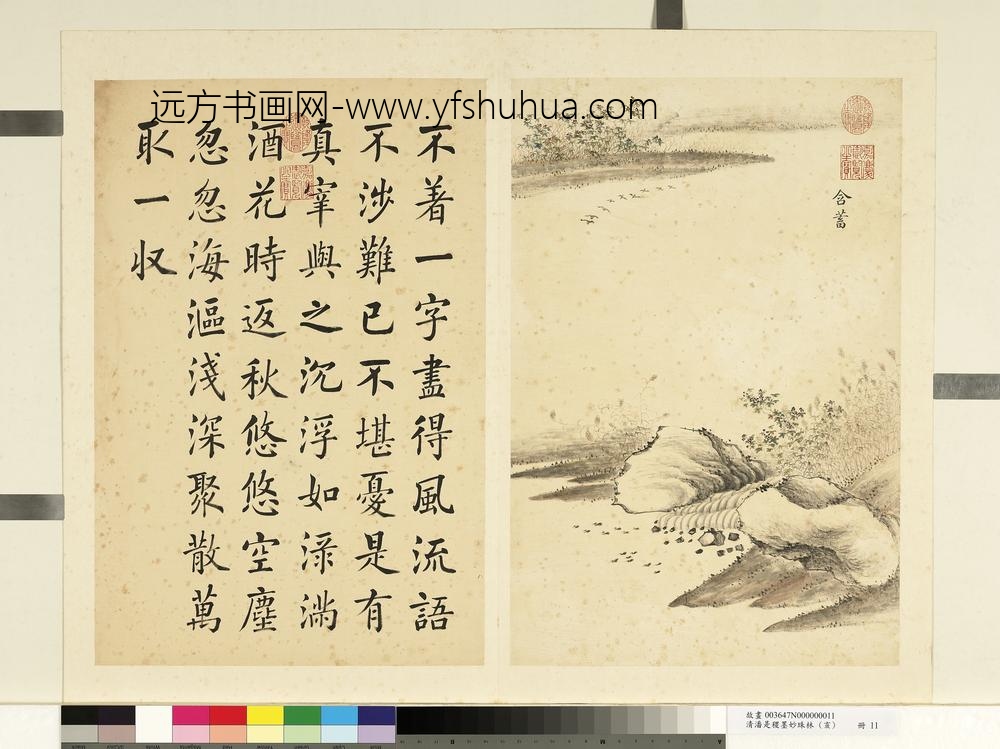 远方书画网-www.yfshuhua.com
不著一字盡得風流語
不涉難已不堪憂是有
真宰與之沉浮如渌滿
酒花時返秋悠悠空塵
忽忽海漚淺深聚散萬
取一収
含蓄
故畫 003647N000000011
清潘是稷墨妙珠林（亥） 冊 11